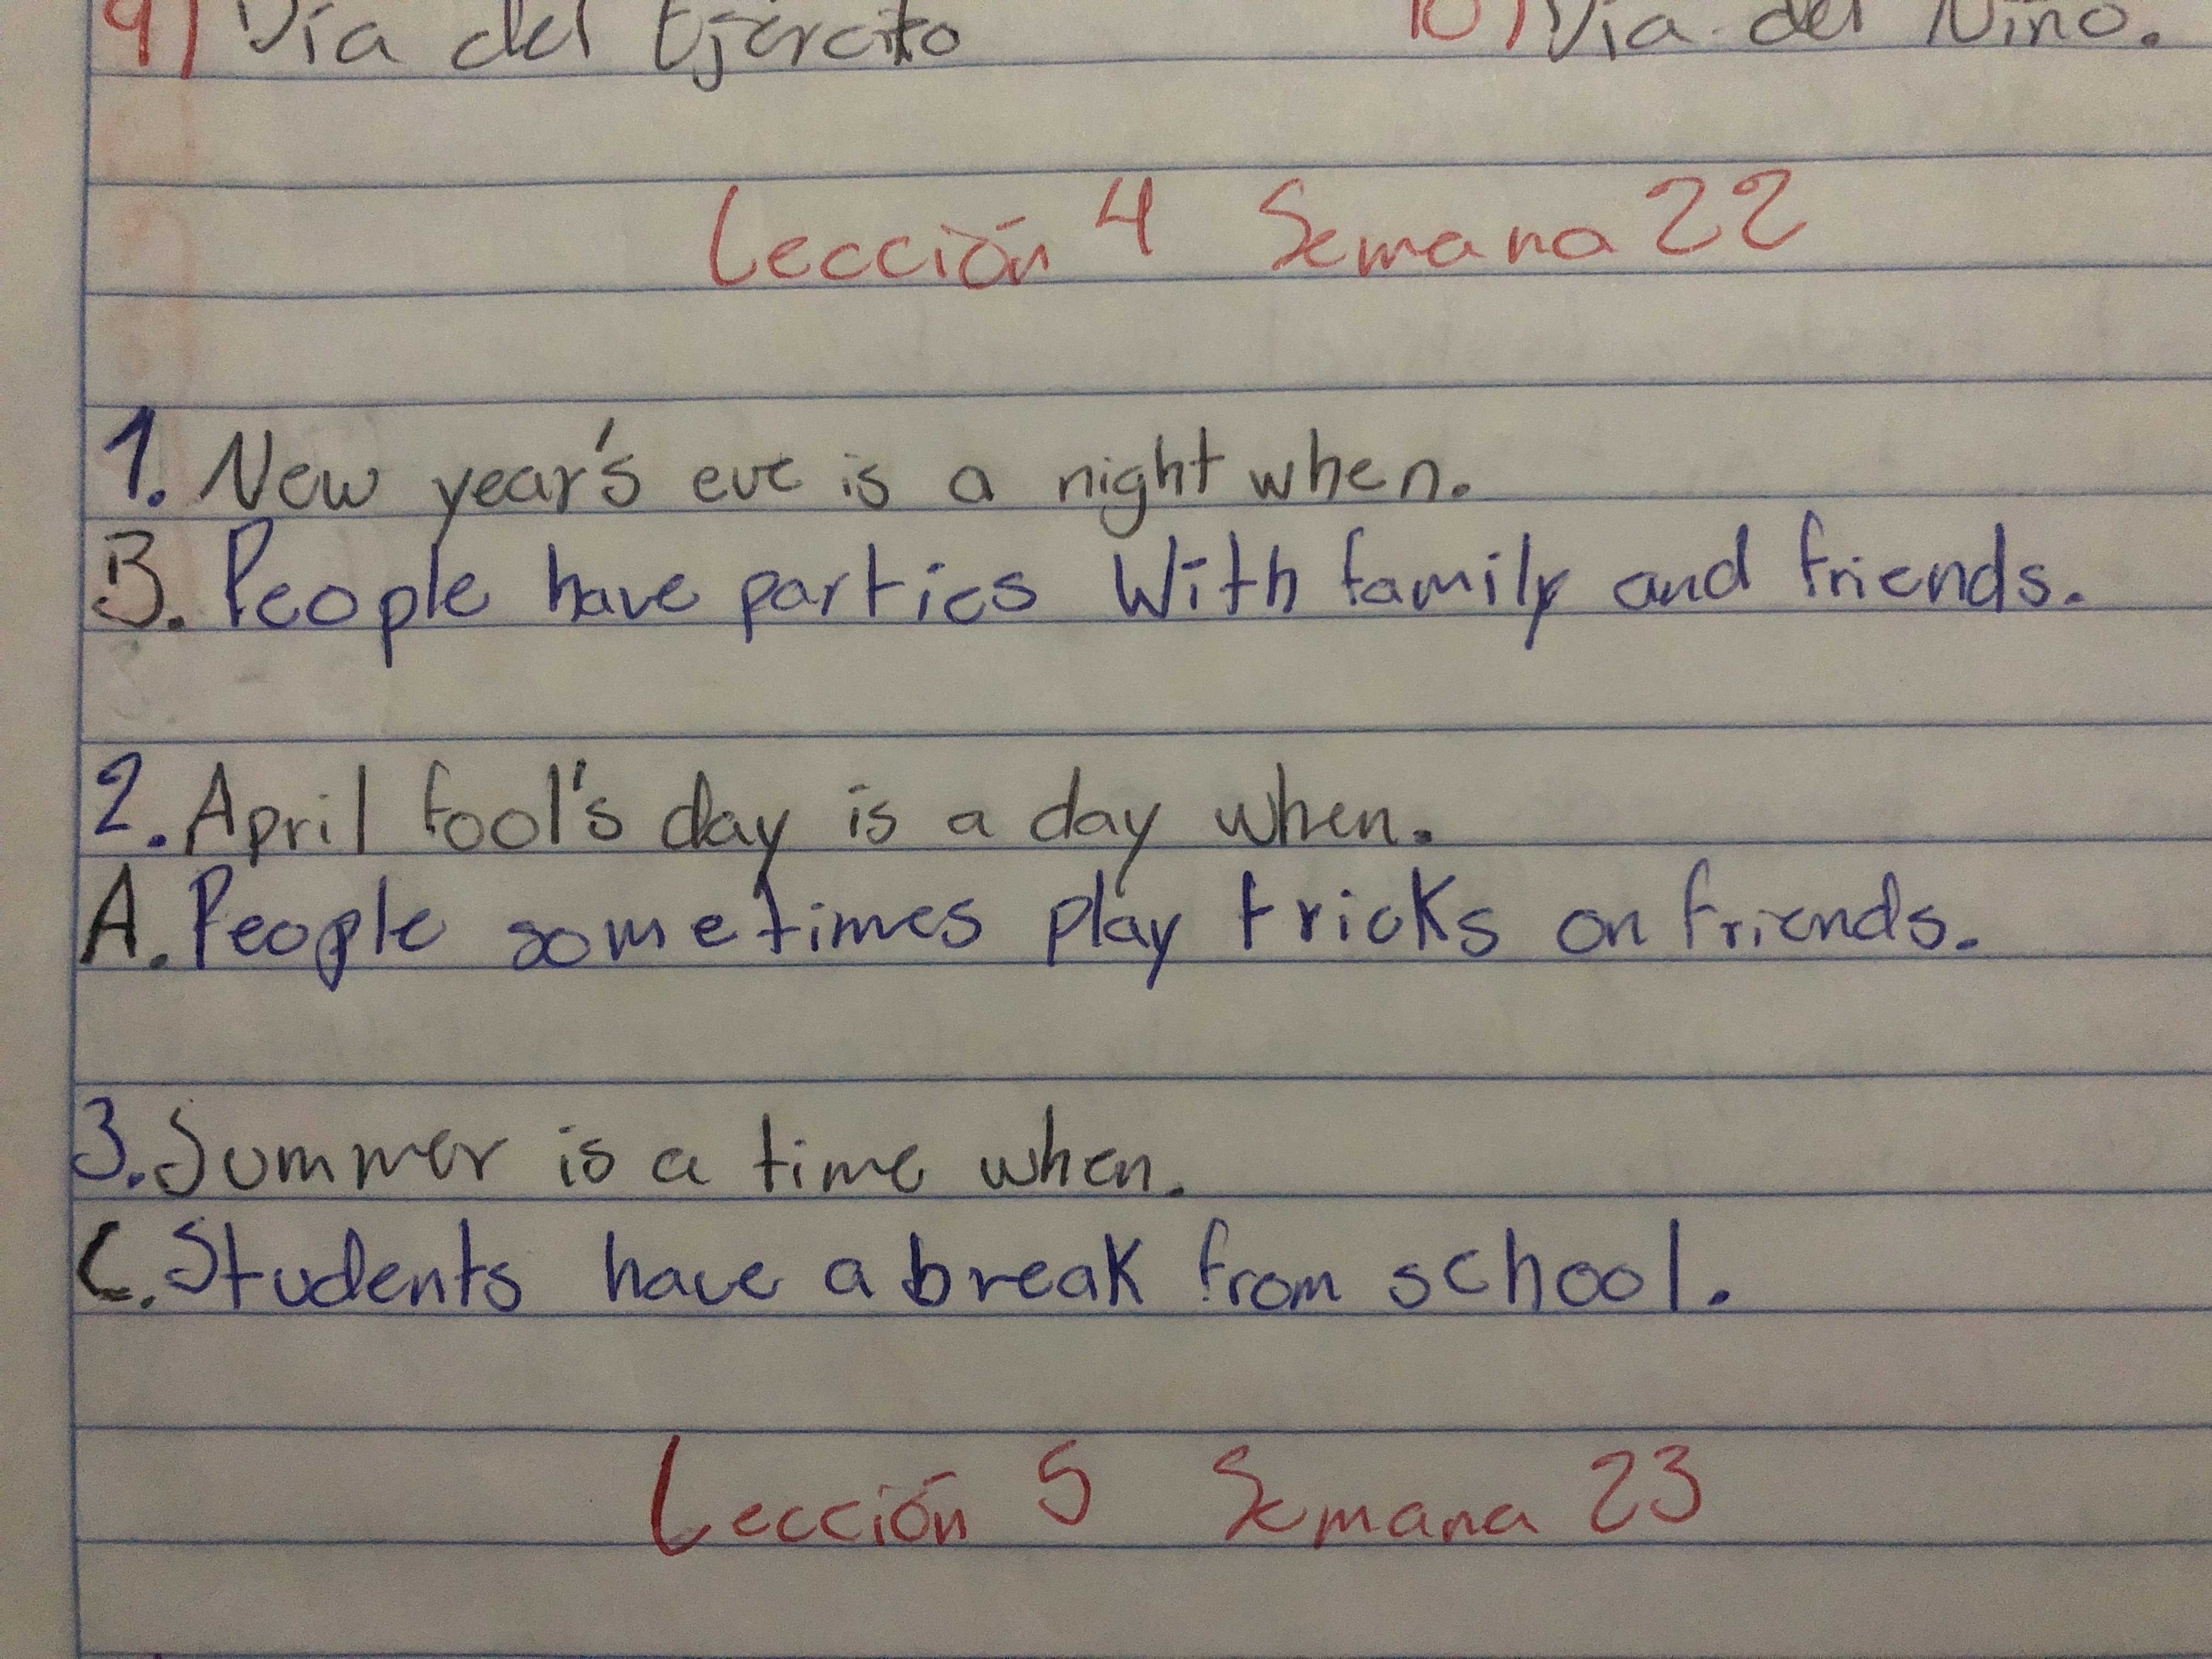 9) Día del Ejército 10) Día del Niño.
Lección 4 Semana 22
1. New year's eve is a night when.
B. People have parties With family and friends.
2. April fool's day is a day when.
A. People sometimes play tricks on friends.
3. Summer is a time when.
C. Students have a break from school.
Lección 5 Semana 23